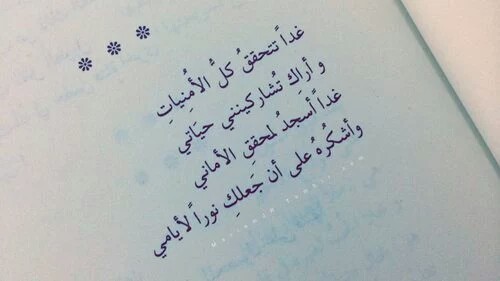 ***
غداً تتحققُ كلُّ الأمُنياتِ
و أراكِ تُشاركينني حيَاتي
غداً أسجدُ لمحققِ الأماني
وأشكُرُهُ على أن جَعلكِ نوراً لأيامي